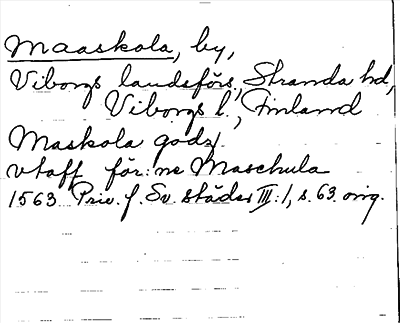 Maaskola, by,
Viborgs landsförs., Stranda hd,
Viborgs l., Finland
Maskola godz
vtaff för:ne Maschula
1563 Priv. f. Sv. städer III:1, s. 63. orig.